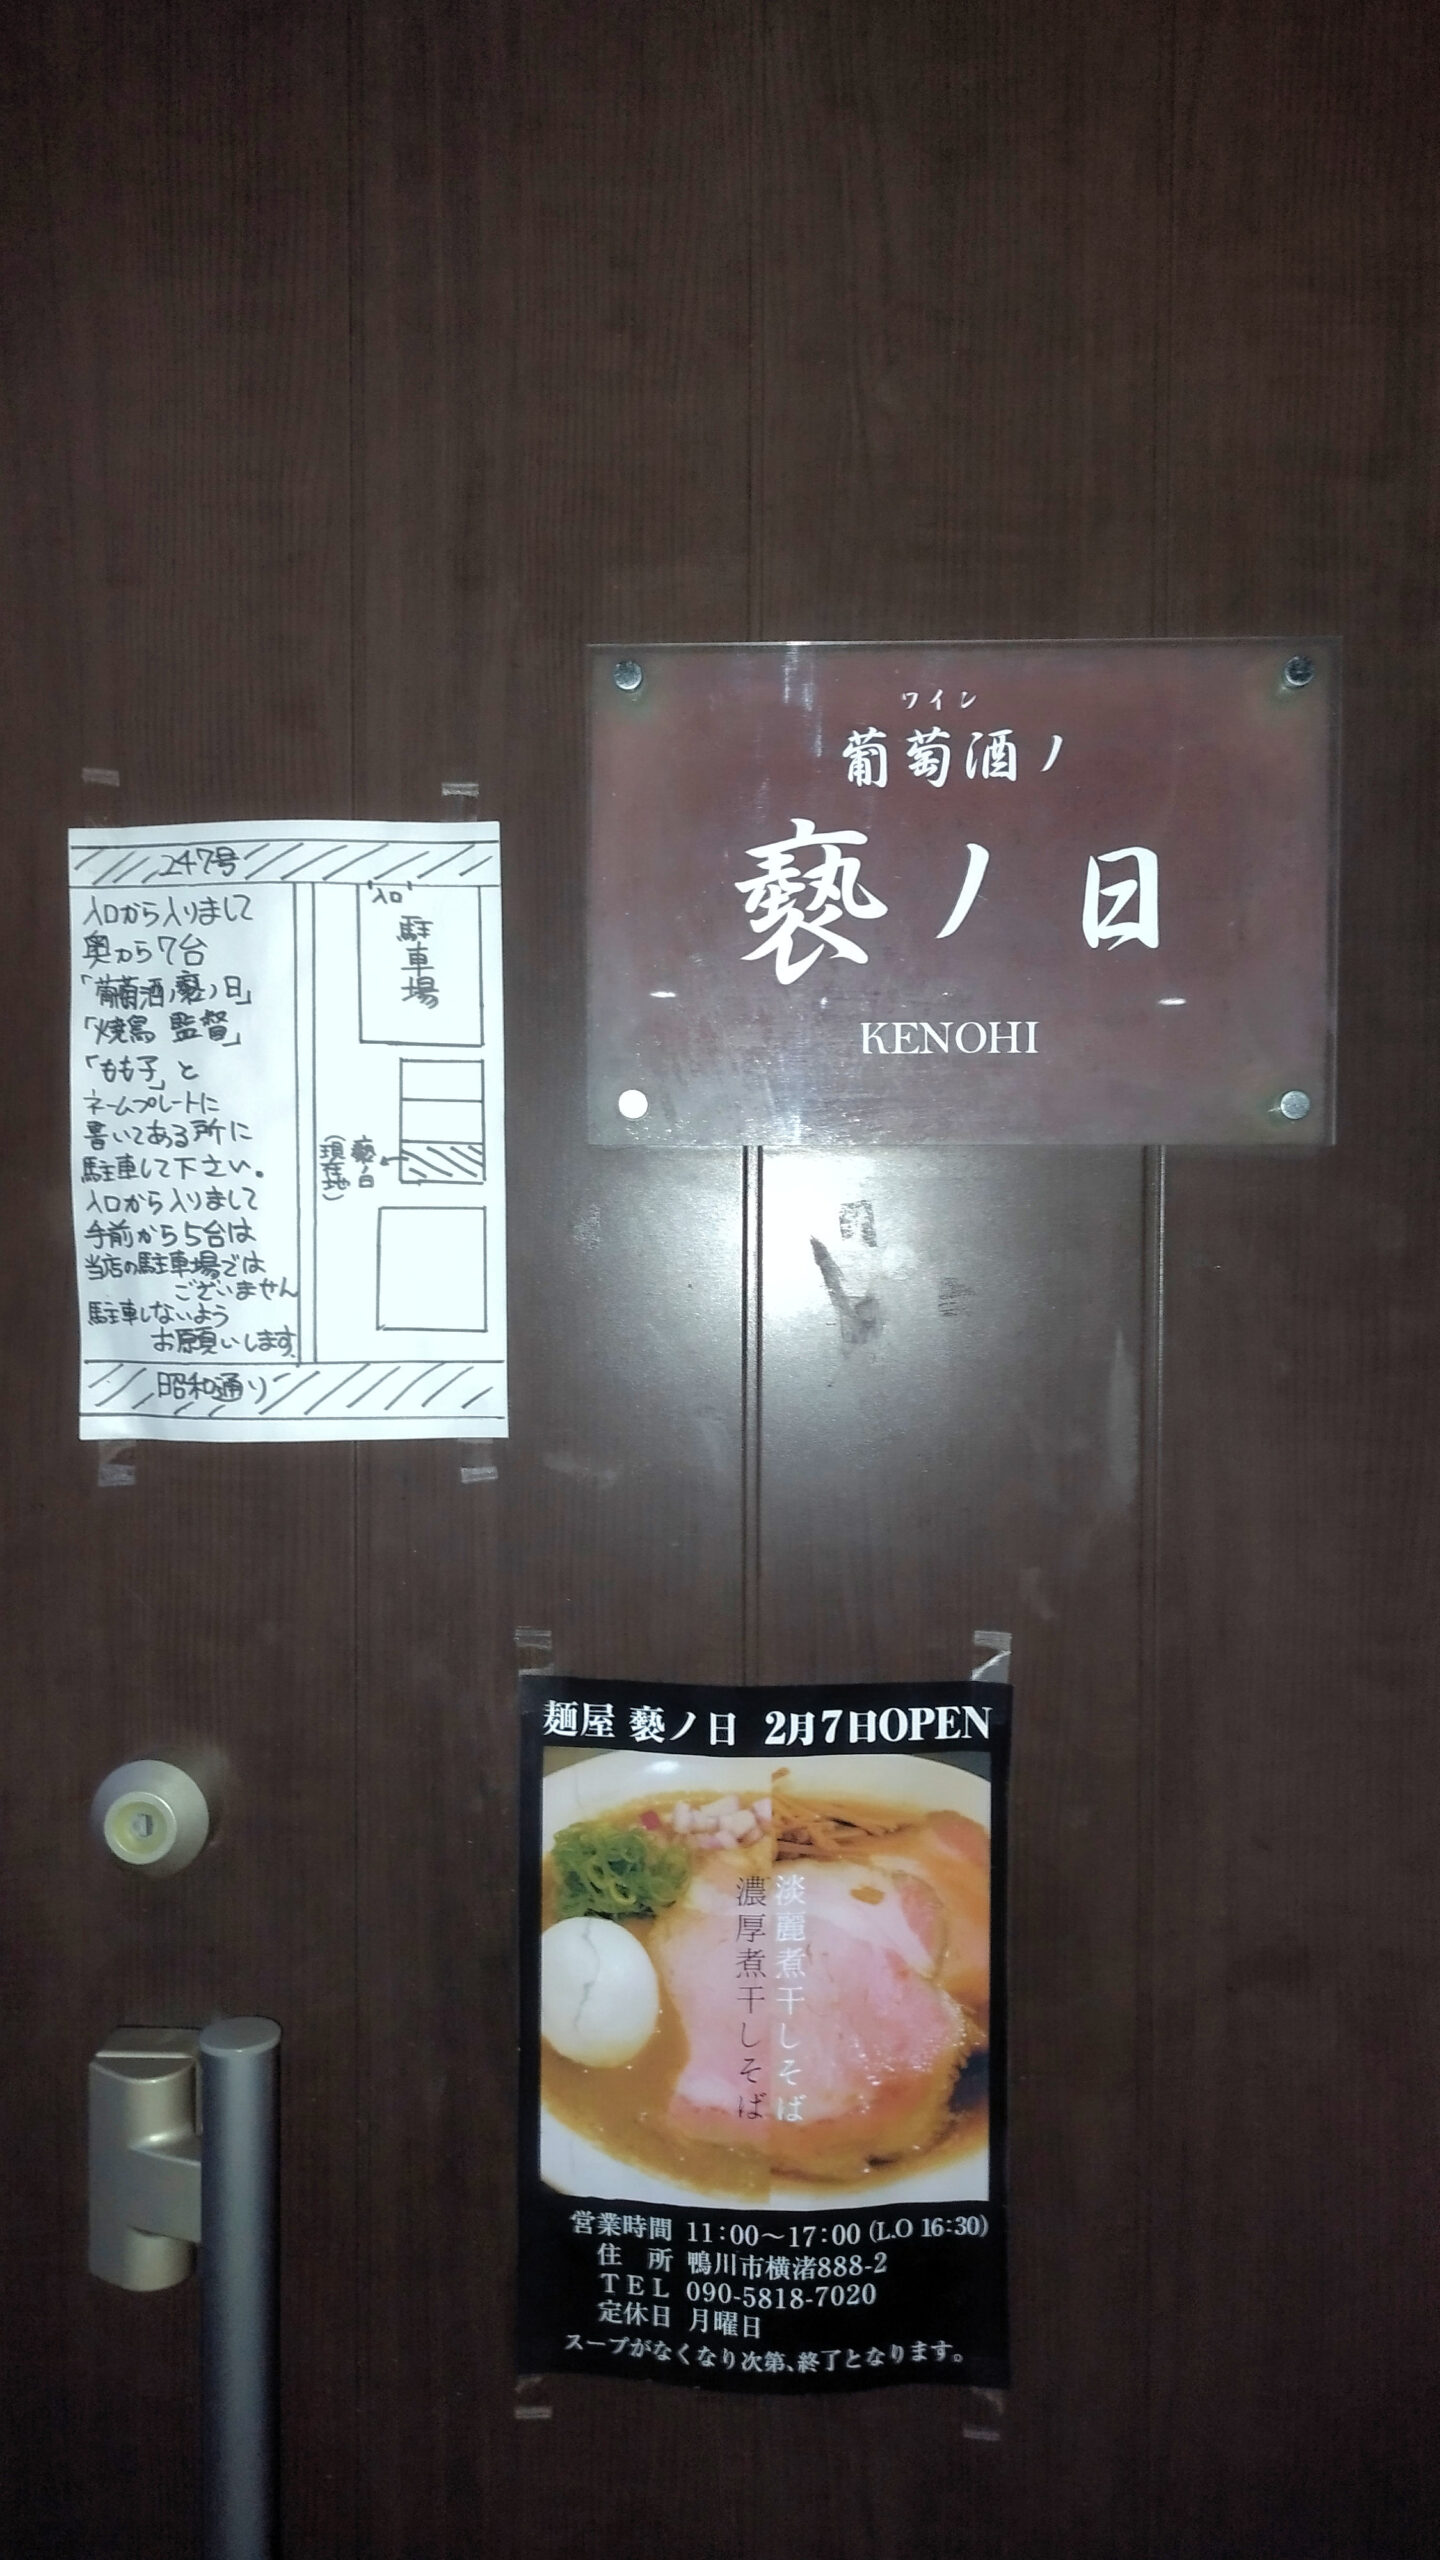 247号
入口から入りまして
奥から7台
「葡萄酒ノ褻ノ日」
「焼鳥 監督」
「もも子」と
ネームプレートに
書いてある所に
駐車して下さい。
入口から入りまして
手前から5台は
当店の駐車場では
ございません
駐車しないよう
お願いします。
入口
駐車場
褻ノ日
(現在地)
昭和通り
ワイン
葡萄酒ノ
褻ノ日
KENOHI
麺屋 褻ノ日 2月7日OPEN
淡麗煮干しそば
濃厚煮干しそば
営業時間 11:00～17:00 (L.O 16:30)
住 所 鴨川市横渚888-2
TEL 090-5818-7020
定休日 月曜日
スープがなくなり次第、終了となります。